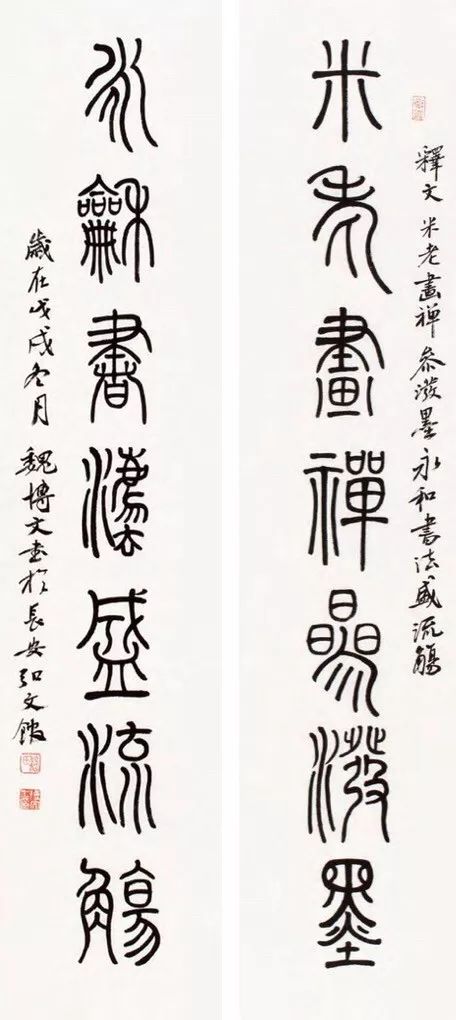 米老畫禪參潑墨
釋文 米老畫禅參潑墨永和書法盛流觴
永龢書灋盛流觴
歲在戊戌冬月 魏博文書於長安弘文館